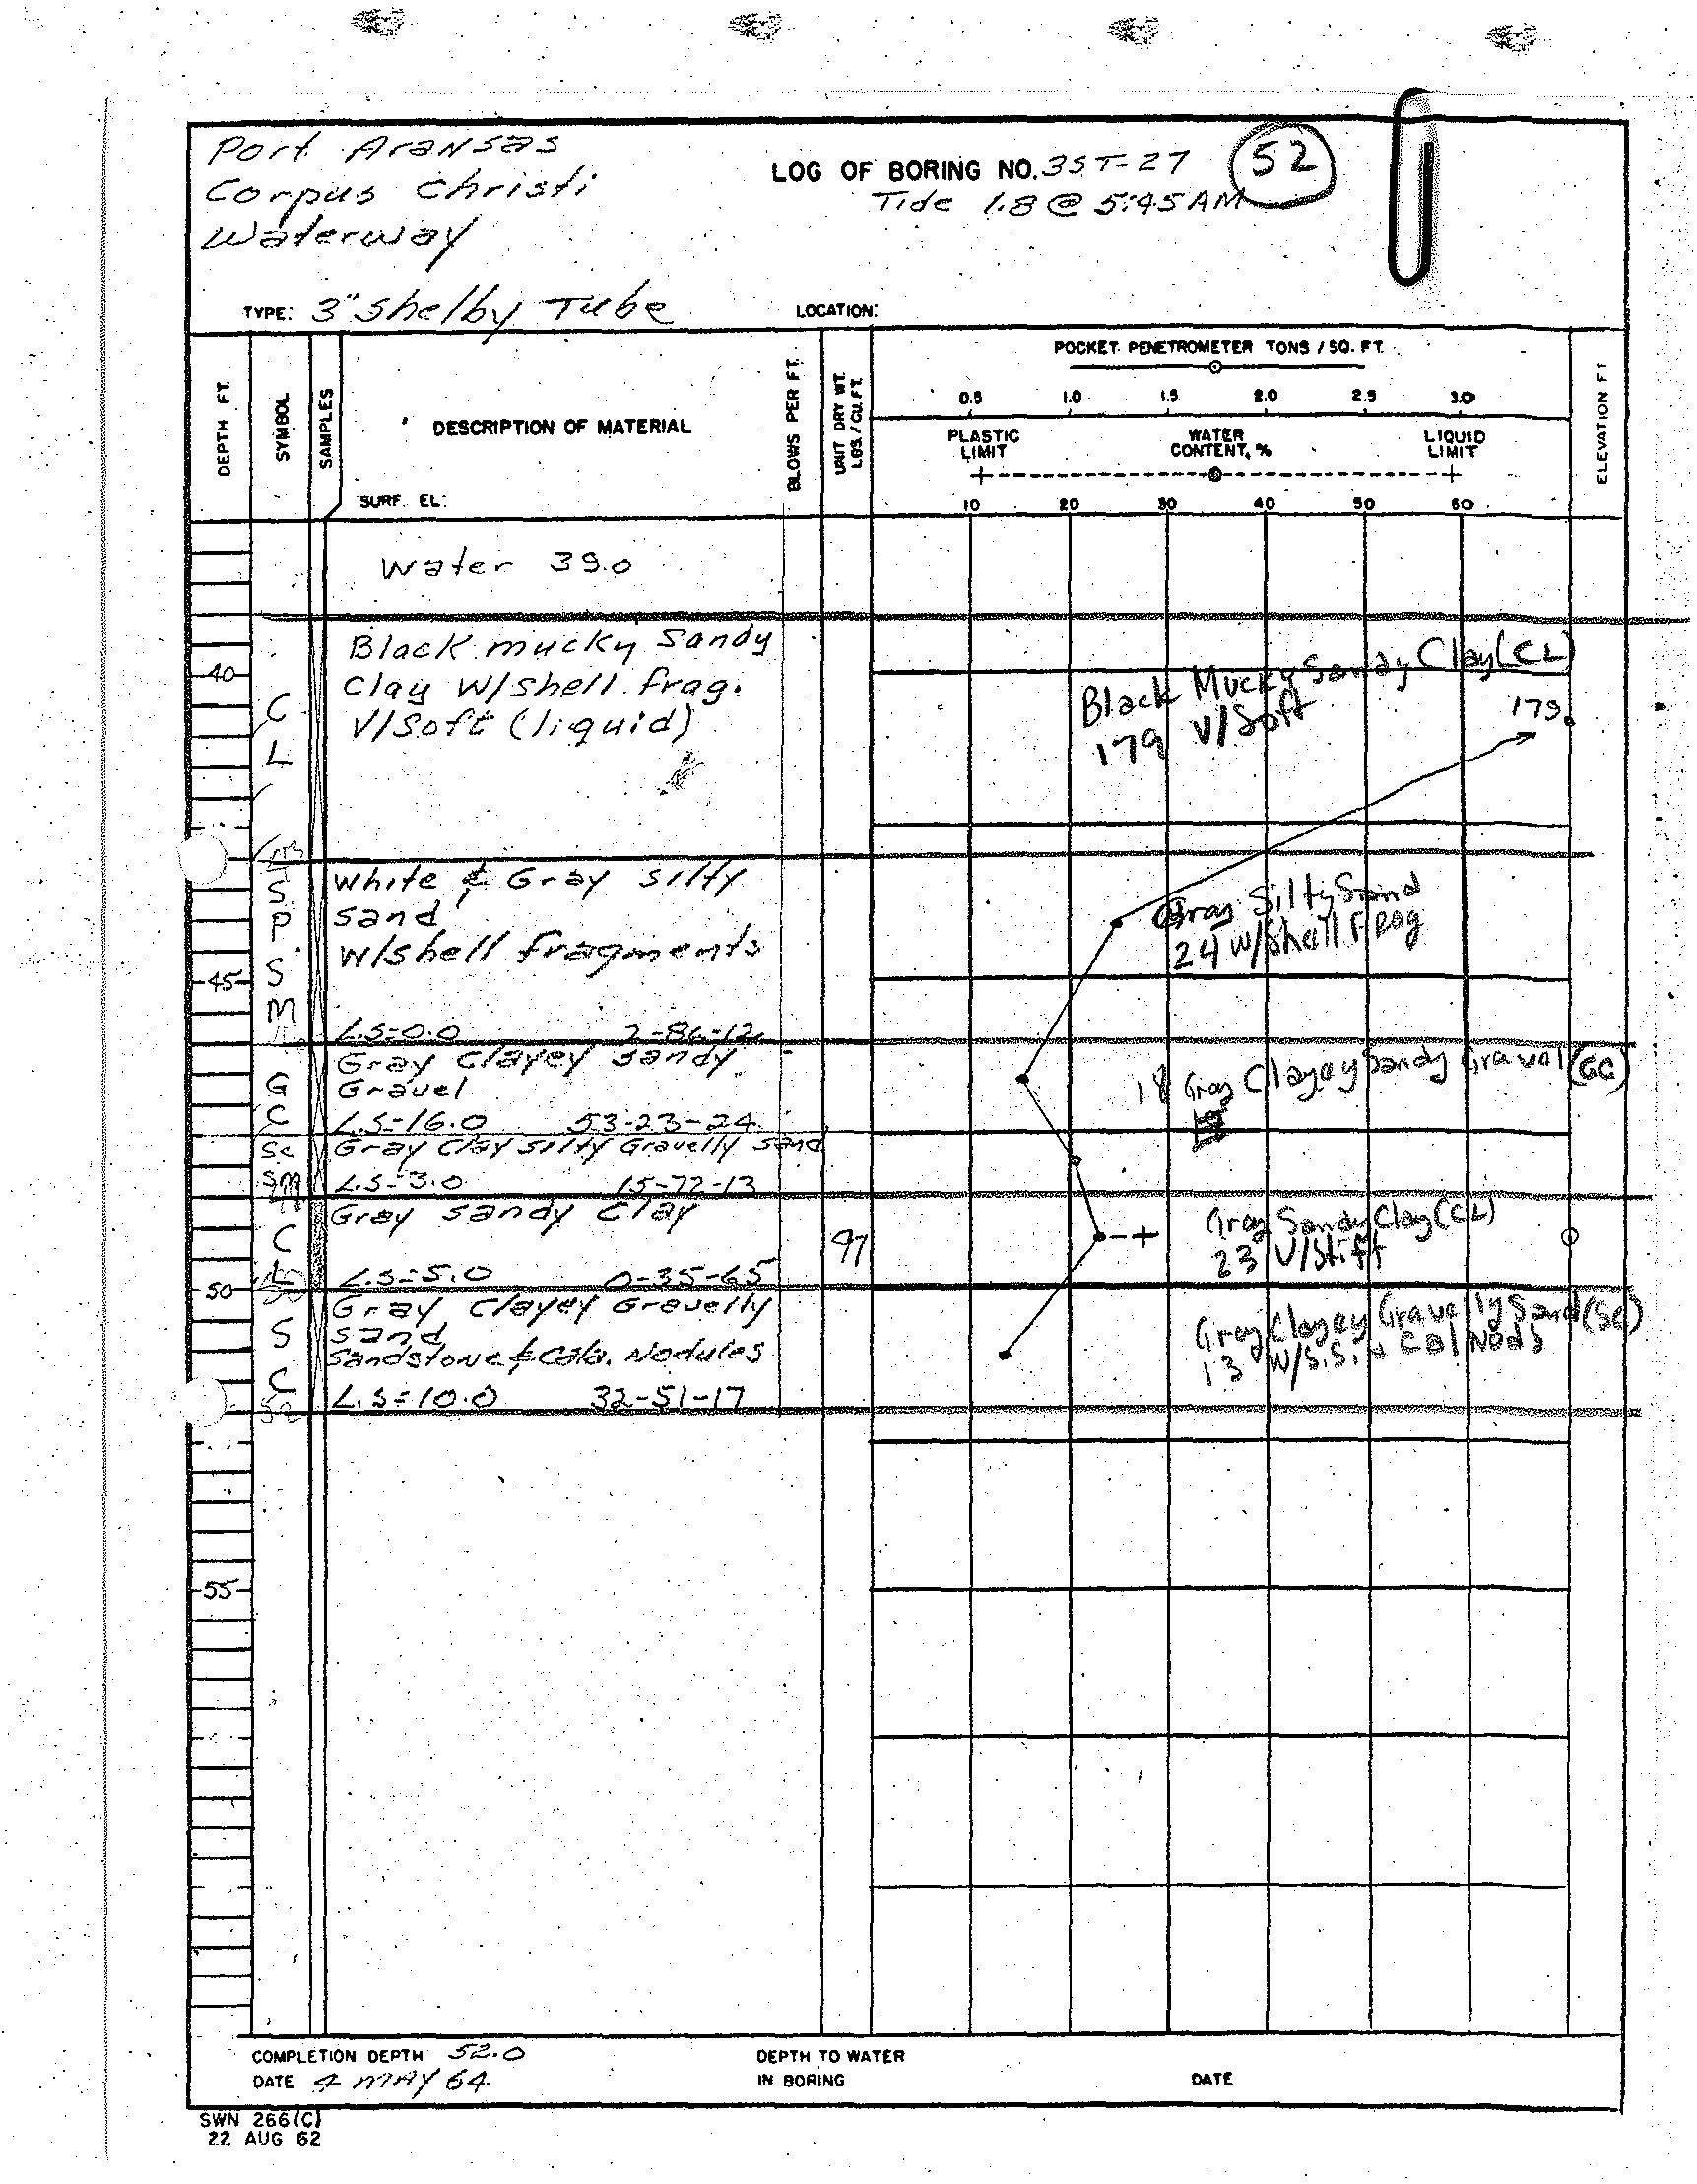 Port Aransas
Corpus Christi
Waterway
LOG OF BORING NO. 3ST-27
52
Tide 1.8 @ 5:45 AM
TYPE: 3" Shelby Tube
LOCATION:
DEPTH FT.
SYMBOL
SAMPLES
DESCRIPTION OF MATERIAL
SURF. EL:
BLOWS PER FT.
UNIT DRY WT. LBS./CU.FT.
POCKET PENETROMETER TONS / SQ. FT.
0.5 1.0 1.5 2.0 2.5 3.0
PLASTIC LIMIT
WATER CONTENT, %
LIQUID LIMIT
10 20 30 40 50 60
ELEVATION FT
Water 39.0
Black mucky Sandy
Clay W/shell frag.
V/Soft (liquid)
40
C
L
Black Mucky Sandy Clay (CL)
179 V/Soft
179
White & Gray silty
sand
W/shell fragments
S
P
S
M
45
L.S=0.0 2-86-12
Gray Silty Sand
24 W/Shell Frag
Gray Clayey Sandy
Gravel
G
C
L.S=16.0 53-23-24
18 Gray Clayey Sandy Gravel (GC)
Gray Clay Silty Gravelly Sand
SC
SM
L.S=3.0 15-72-13
Gray Sandy Clay
C
L
97
L.S=5.0 0-35-65
Gray Sandy Clay (CL)
23 V/Stiff
50
Gray Clayey Gravelly
Sand
Sandstone & Calc. Nodules
S
C
L.S=10.0 32-51-17
52
Gray Clayey Gravelly Sand (SC)
13 W/S.S. & Cal Nods
55
COMPLETION DEPTH 52.0
DATE 4 MAY 64
DEPTH TO WATER
IN BORING
DATE
SWN 266(C)
22 AUG 62